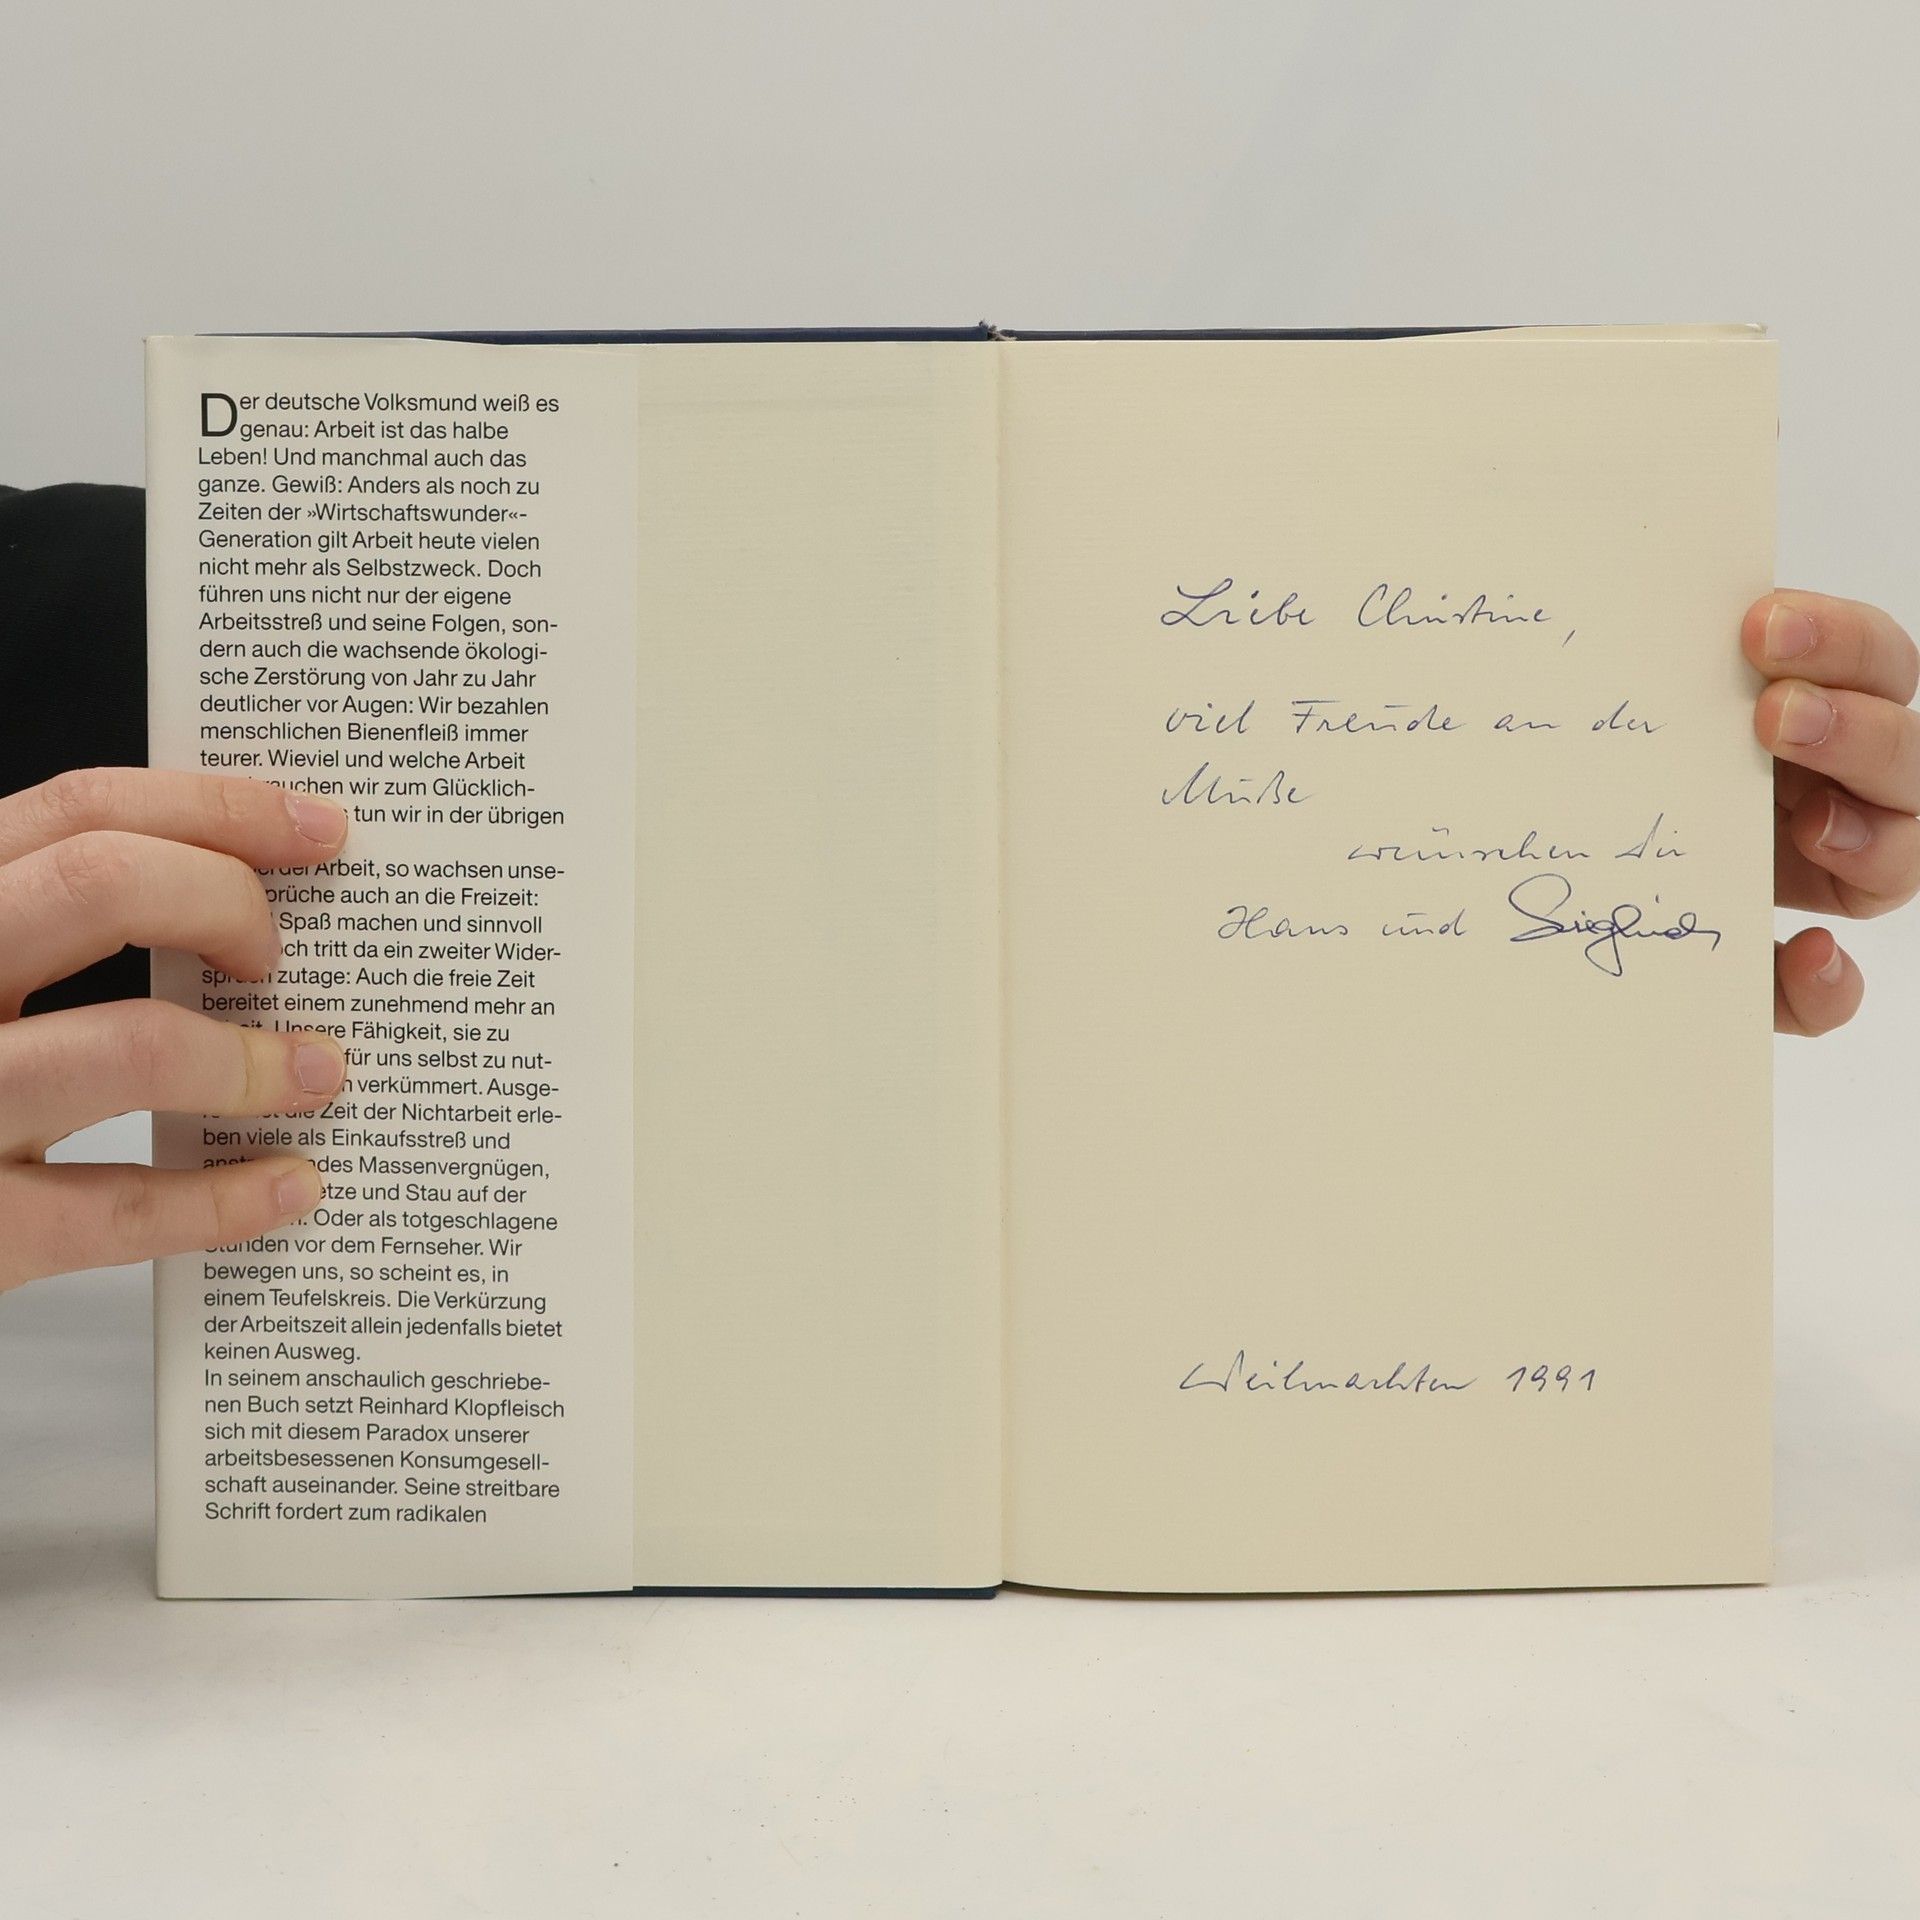 Der deutsche Volksmund weiß es
genau: Arbeit ist das halbe
Leben! Und manchmal auch das
ganze. Gewiß: Anders als noch zu
Zeiten der »Wirtschaftswunder«-
Generation gilt Arbeit heute vielen
nicht mehr als Selbstzweck. Doch
führen uns nicht nur der eigene
Arbeitsstreß und seine Folgen, son-
dern auch die wachsende ökologi-
sche Zerstörung von Jahr zu Jahr
deutlicher vor Augen: Wir bezahlen
menschlichen Bienenfleiß immer
teurer. Wieviel und welche Arbeit
wir zum Glücklich-
tun wir in der übrigen
Arbeit, so wachsen unse-
auch an die Freizeit:
Spaß machen und sinnvoll
tritt da ein zweiter Wider-
spruch zutage: Auch die freie Zeit
bereitet einem zunehmend mehr an
Unsere Fähigkeit, sie zu
für uns selbst zu nut-
verkümmert. Ausge-
die Zeit der Nichtarbeit erle-
ben viele als Einkaufsstreß und
Massenvergnügen,
und Stau auf der
Oder als totgeschlagene
Stunden vor dem Fernseher. Wir
bewegen uns, so scheint es, in
einem Teufelskreis. Die Verkürzung
der Arbeitszeit allein jedenfalls bietet
keinen Ausweg.
In seinem anschaulich geschriebe-
nen Buch setzt Reinhard Klopfleisch
sich mit diesem Paradox unserer
arbeitsbesessenen Konsumgesell-
schaft auseinander. Seine streitbare
Schrift fordert zum radikalen
Liebe Christine,
viel Freude an der
Muße
wünschen Dir
Hans und
Weihnachten 1991